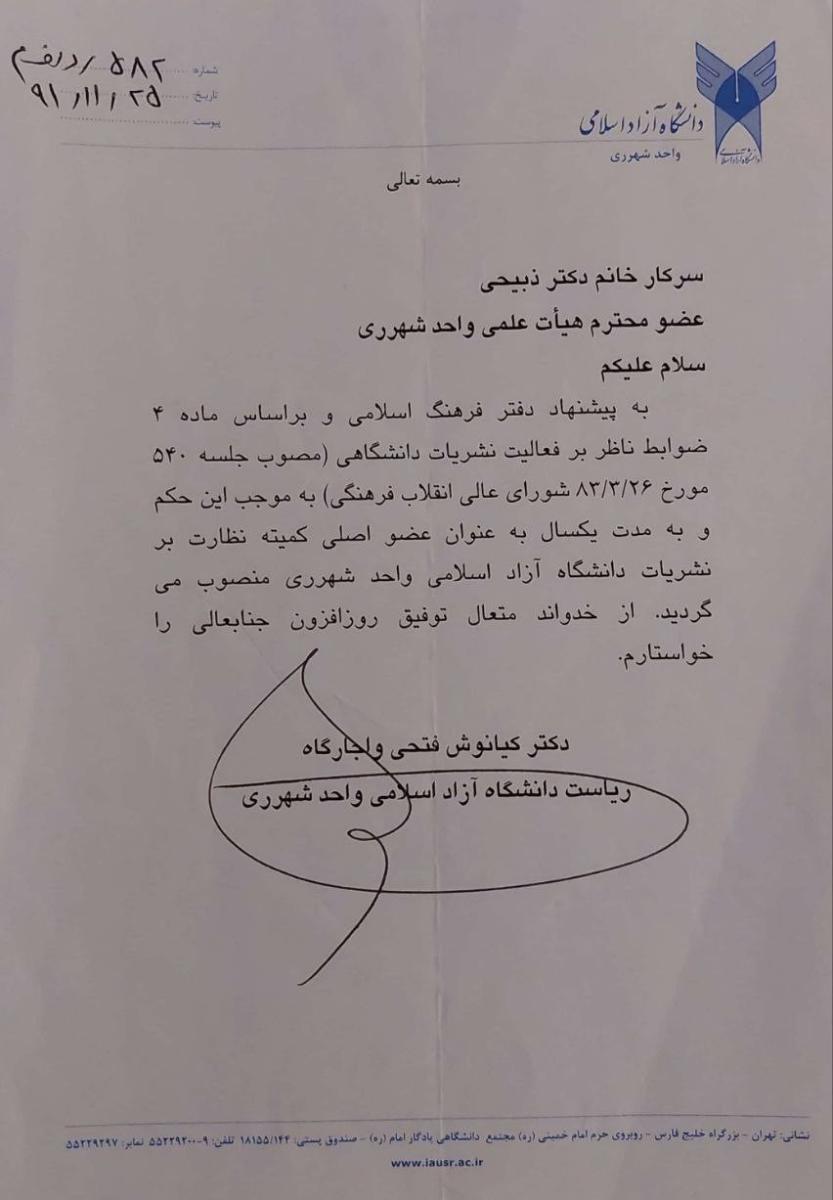 دانشگاه آزاد اسلامی
واحد شهرری
شماره: ۵۸۲
تاریخ: ۹۱/۱۱/۲۵
پیوست:
بسمه تعالی
سرکار خانم دکتر ذبیحی
عضو محترم هیأت علمی واحد شهرری
سلام علیکم
به پیشنهاد دفتر فرهنگ اسلامی و براساس ماده ۴
ضوابط ناظر بر فعالیت نشریات دانشگاهی (مصوب جلسه ۵۴۰
مورخ ۸۳/۳/۲۶ شورای عالی انقلاب فرهنگی) به موجب این حکم
و به مدت یکسال به عنوان عضو اصلی کمیته نظارت بر
نشریات دانشگاه آزاد اسلامی واحد شهرری منصوب می
گردید. از خداوند متعال توفیق روزافزون جنابعالی را
خواستارم.
دکتر کیانوش فتحی واجارگاه
ریاست دانشگاه آزاد اسلامی واحد شهرری
نشانی: تهران - بزرگراه خلیج فارس - روبروی حرم امام خمینی (ره) مجتمع دانشگاهی یادگار امام (ره) - صندوق پستی: ۱۸۱۵۵/۱۴۴ تلفن: ۹-۵۵۲۲۹۲۰۰ نمابر: ۵۵۲۲۹۲۹۷
www.iausr.ac.ir